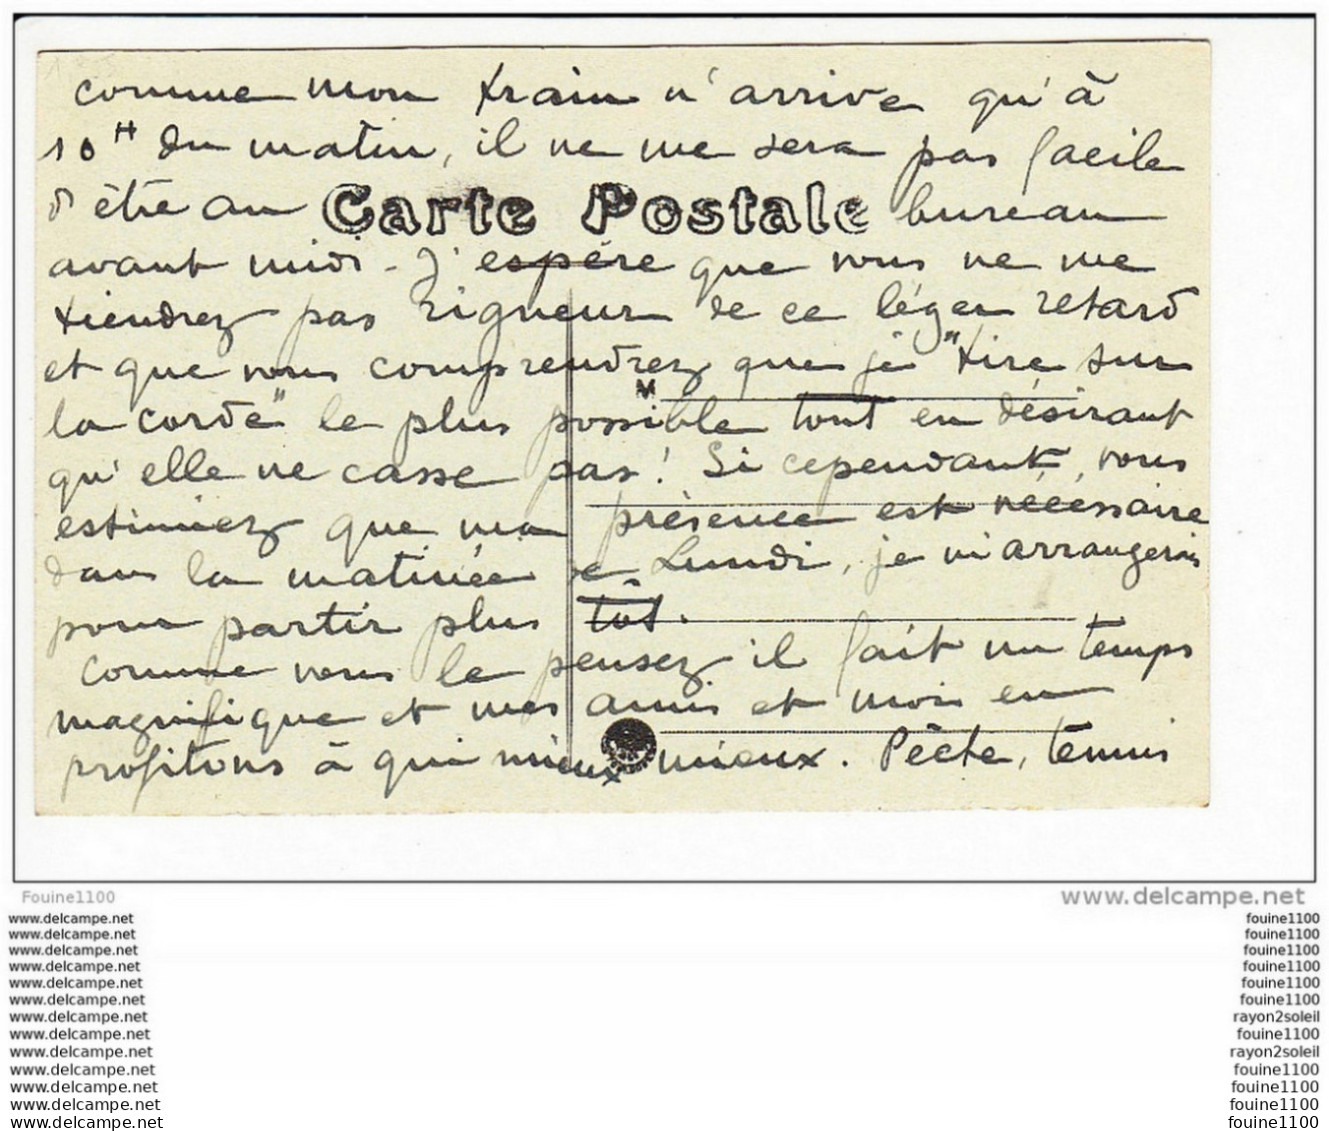 comme mon train n'arrive qu'à
10H du matin, il ne me sera pas facile
d'être au Carte Postale bureau
avant midi - J'espère que vous ne me
tiendrez pas rigueur de ce léger retard
et que vous comprendrez que je "tire sur
la corde" le plus possible tout en désirant
M
qu'elle ne casse pas! Si cependant, vous
estimiez que ma présence est nécéssaire
dans la matinée de Lundi, je m'arrangerais
pour partir plus tôt.
Comme vous le pensez il fait un temps
magnifique et mes amis et moi en
profitons à qui mieux mieux. Pêche, tennis
Fouine1100 www.delcampe.net
www.delcampe.net fouine1100
www.delcampe.net fouine1100
www.delcampe.net fouine1100
www.delcampe.net fouine1100
www.delcampe.net fouine1100
www.delcampe.net fouine1100
www.delcampe.net rayon2soleil
www.delcampe.net fouine1100
www.delcampe.net rayon2soleil
www.delcampe.net fouine1100
www.delcampe.net fouine1100
www.delcampe.net fouine1100
www.delcampe.net fouine1100